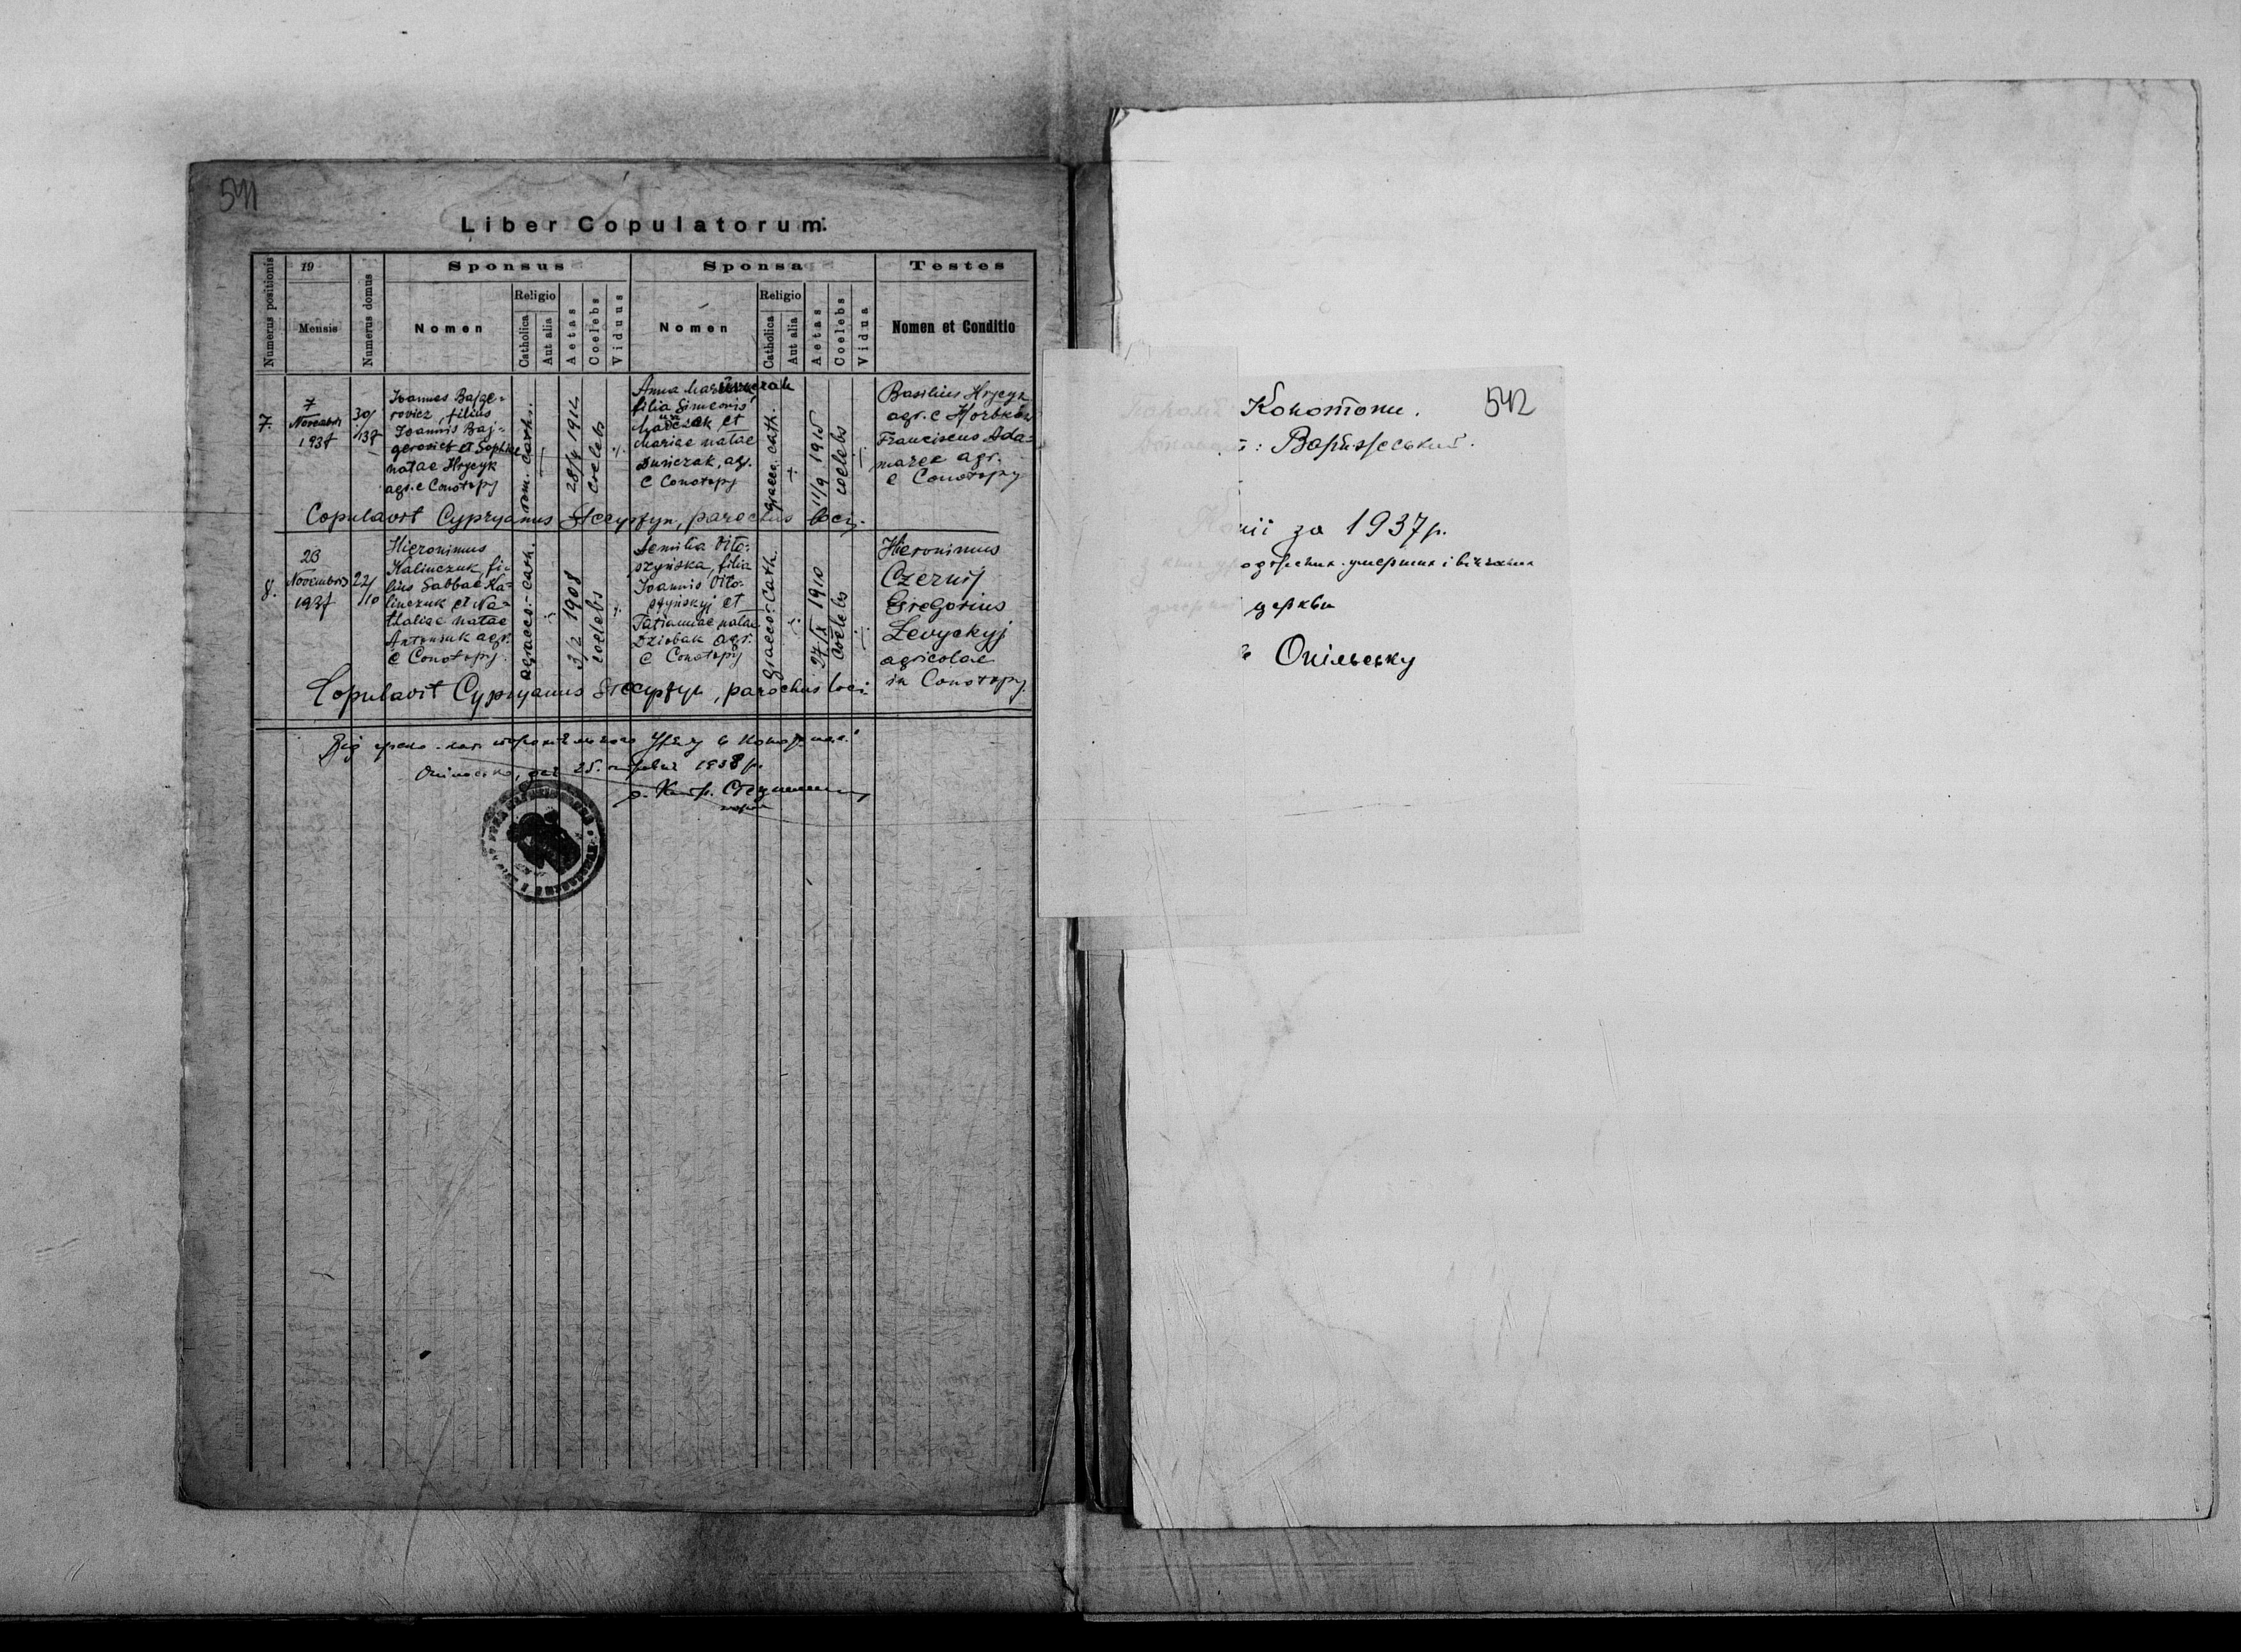 541
Liber Copulatorum.
Numerus positionis
19
Mensis
Numerus domus
Sponsus
Nomen
Religio
Catholica
Aut alia
Aetas
Coelebs
Viduus
Sponsa
Nomen
Religio
Catholica
Aut alia
Aetas
Coelebs
Vidua
Testes
Nomen et Conditio
7.
7
Novembris
1937
30/
137
Ioannes Bajge-
rovicz, filius
Ioannis Baj-
gerovicz et Sophiae
natae Hrycyk
agr. e Conotopy
rom. cath.
28/4 1914
coelebs
Anna
filia Simeonis
et
Mariae natae
agr.
e Conotopy
graeco cath.
11/9 1915
coelebs
Basilius Hrycyk
agr. e Horbków
Franciscus Ada-
marek agr.
e Conotopy
Copulavit Cypryanus Steczyszyn, parochus loci.
8.
Novembris
1937
22/
110
Hieronimus
Kalinczuk, fi-
lius Sabbae Ka-
linczuk et Na-
thaliae natae
Antoniuk agr.
e Conotopy.
graeco-cath.
3/2 1908
coelebs
filia
Ioannis Vito-
szyńskyj et
Tatiannae natae
Dziobak agr.
e Conotopy
graeco-cath.
27/X 1910
coelebs
Hieronimus
Czernij
Gregorius
Levyckyj
agricolae
in Conotopy
Copulavit Cypryanus Steczyszyn, parochus loci
Від греко-кат. уряду в
25. 1938 р.
Конотопи.
542
за 1937 р.
умерших і вінчаних
церкви
Опільську